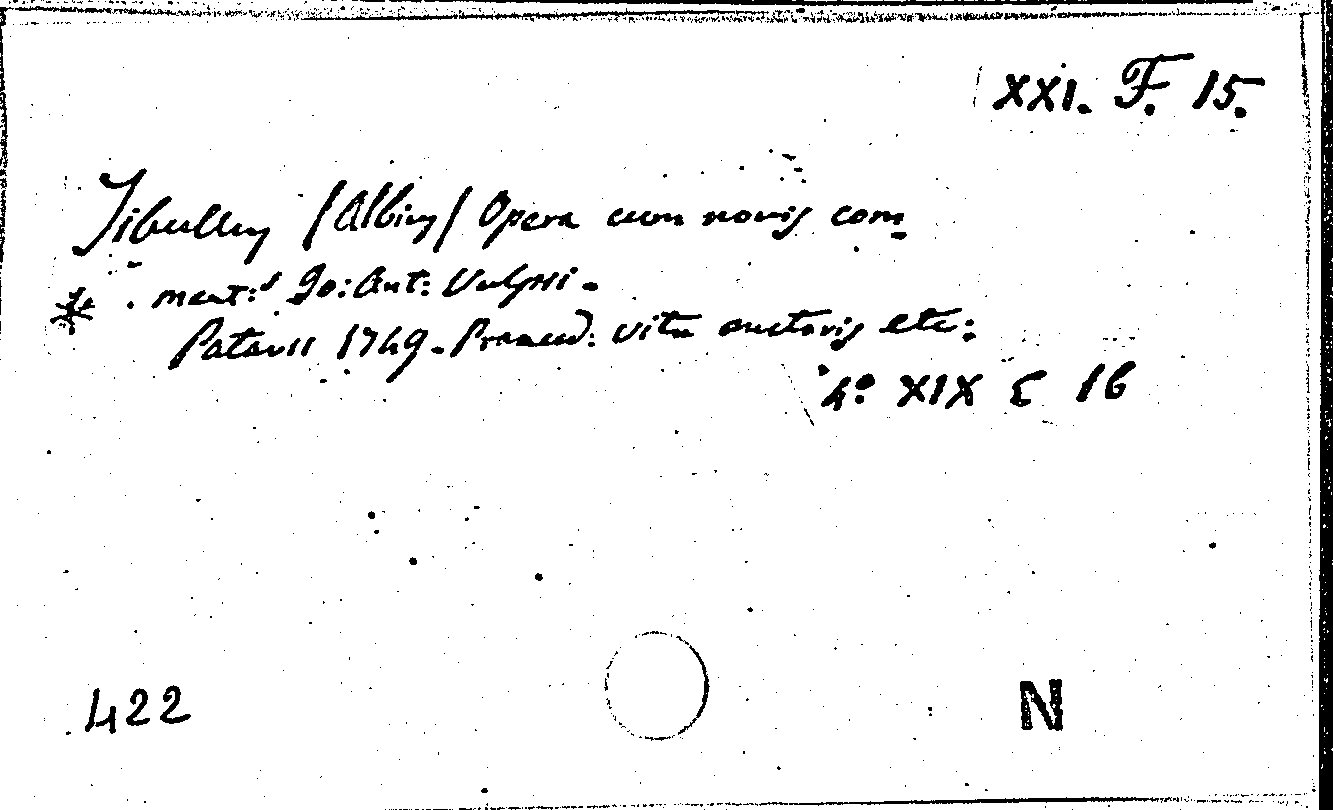 XXI. F. 15.
Tibullus /Albius/ Opera cum novis com-
* ment:s Jo: Ant: Vulpii.
Patavii 1749. Praeced: vita auctoris etc:
4º XIX C 16
422
N